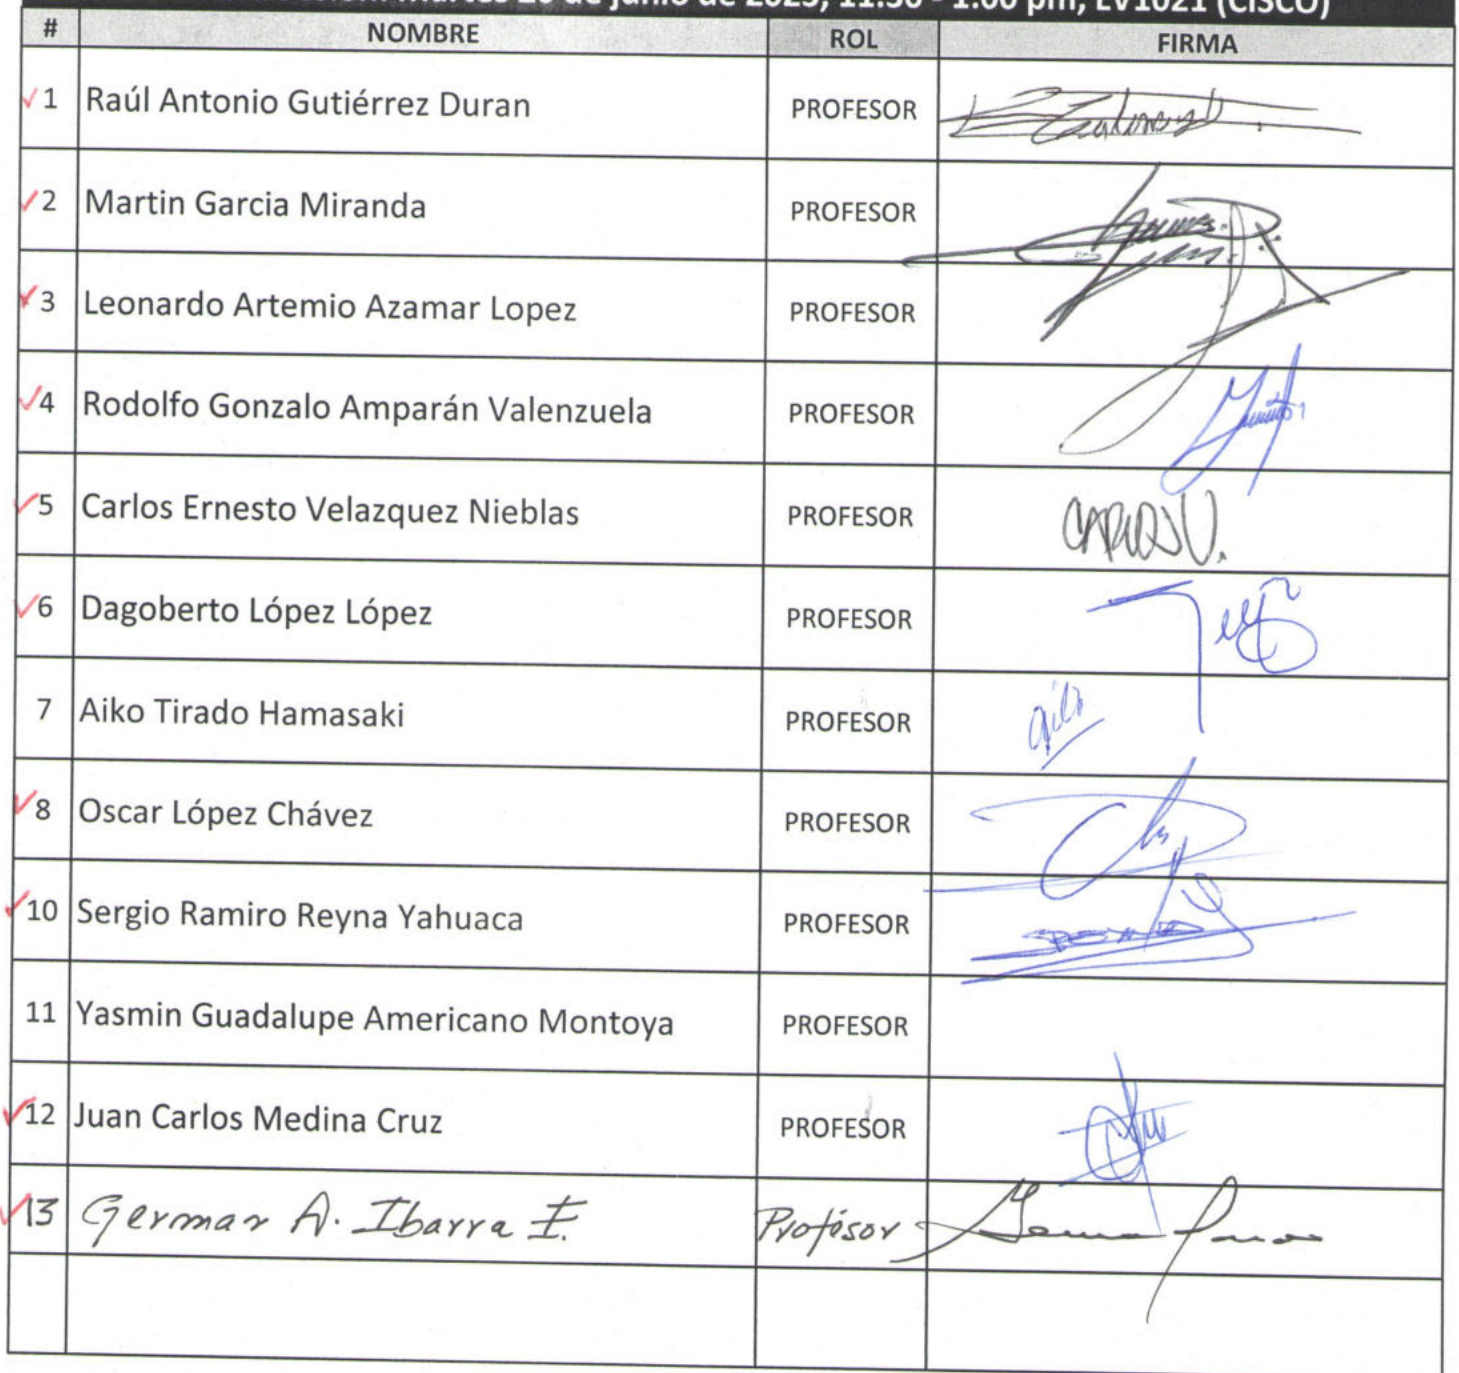 martes 20 de junio de 2023, 11:30 - 1:00 pm, LV1021 (CISCO)
# NOMBRE ROL FIRMA
1 Raúl Antonio Gutiérrez Duran PROFESOR
2 Martin Garcia Miranda PROFESOR
3 Leonardo Artemio Azamar Lopez PROFESOR
4 Rodolfo Gonzalo Amparán Valenzuela PROFESOR
5 Carlos Ernesto Velazquez Nieblas PROFESOR CARLOS V.
6 Dagoberto López López PROFESOR
7 Aiko Tirado Hamasaki PROFESOR
8 Oscar López Chávez PROFESOR
10 Sergio Ramiro Reyna Yahuaca PROFESOR
11 Yasmin Guadalupe Americano Montoya PROFESOR
12 Juan Carlos Medina Cruz PROFESOR
13 German A. Ibarra E. Profesor